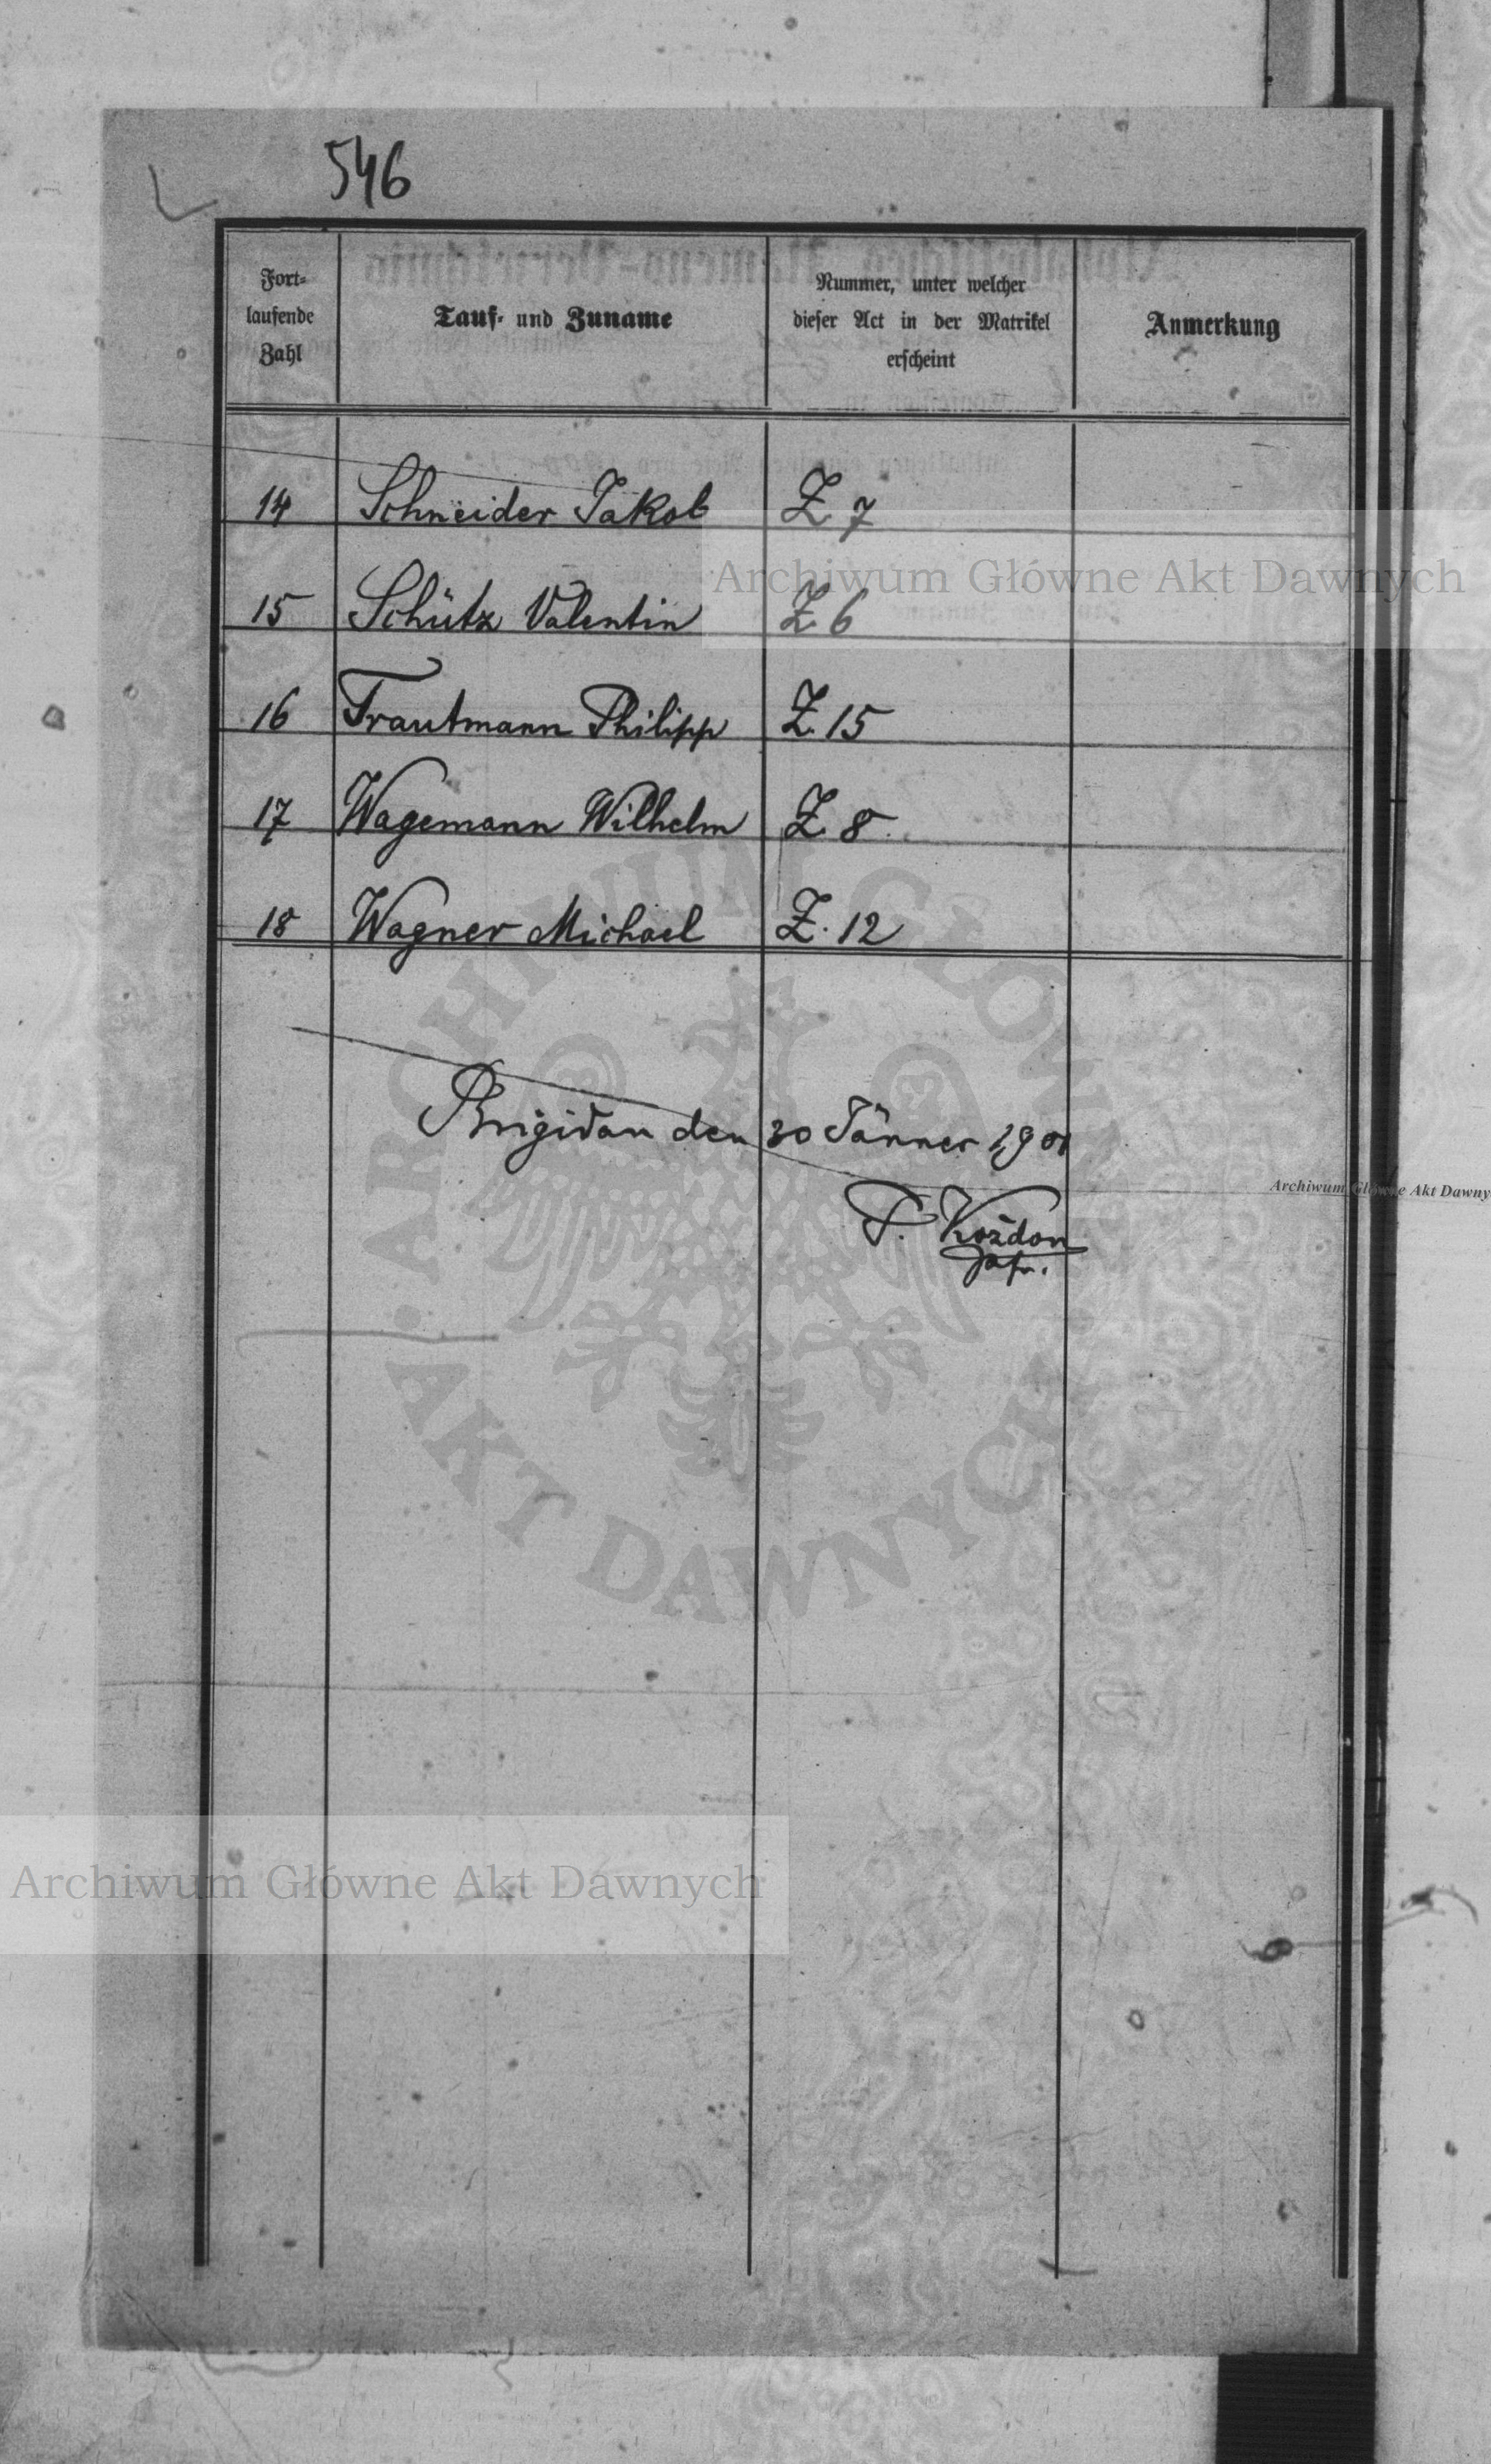 546
Fort-
laufende
Zahl
Tauf- und Zuname
Nummer, unter welcher
dieser Act in der Matrikel
erscheint
Anmerkung
14 Schneider Jakob Z. 7
15 Schütz Valentin Z. 6
16 Trautmann Philipp Z. 15
17 Wagemann Wilhelm Z. 8
18 Wagner Michael Z. 12
Brigidau den 30 Jänner 1901
P. Koždon
Archiwum Główne Akt Dawnych
Archiwum Główne Akt Dawny
ARCHIWUM GŁÓWNE
AKT DAWNYCH
Archiwum Główne Akt Dawnych